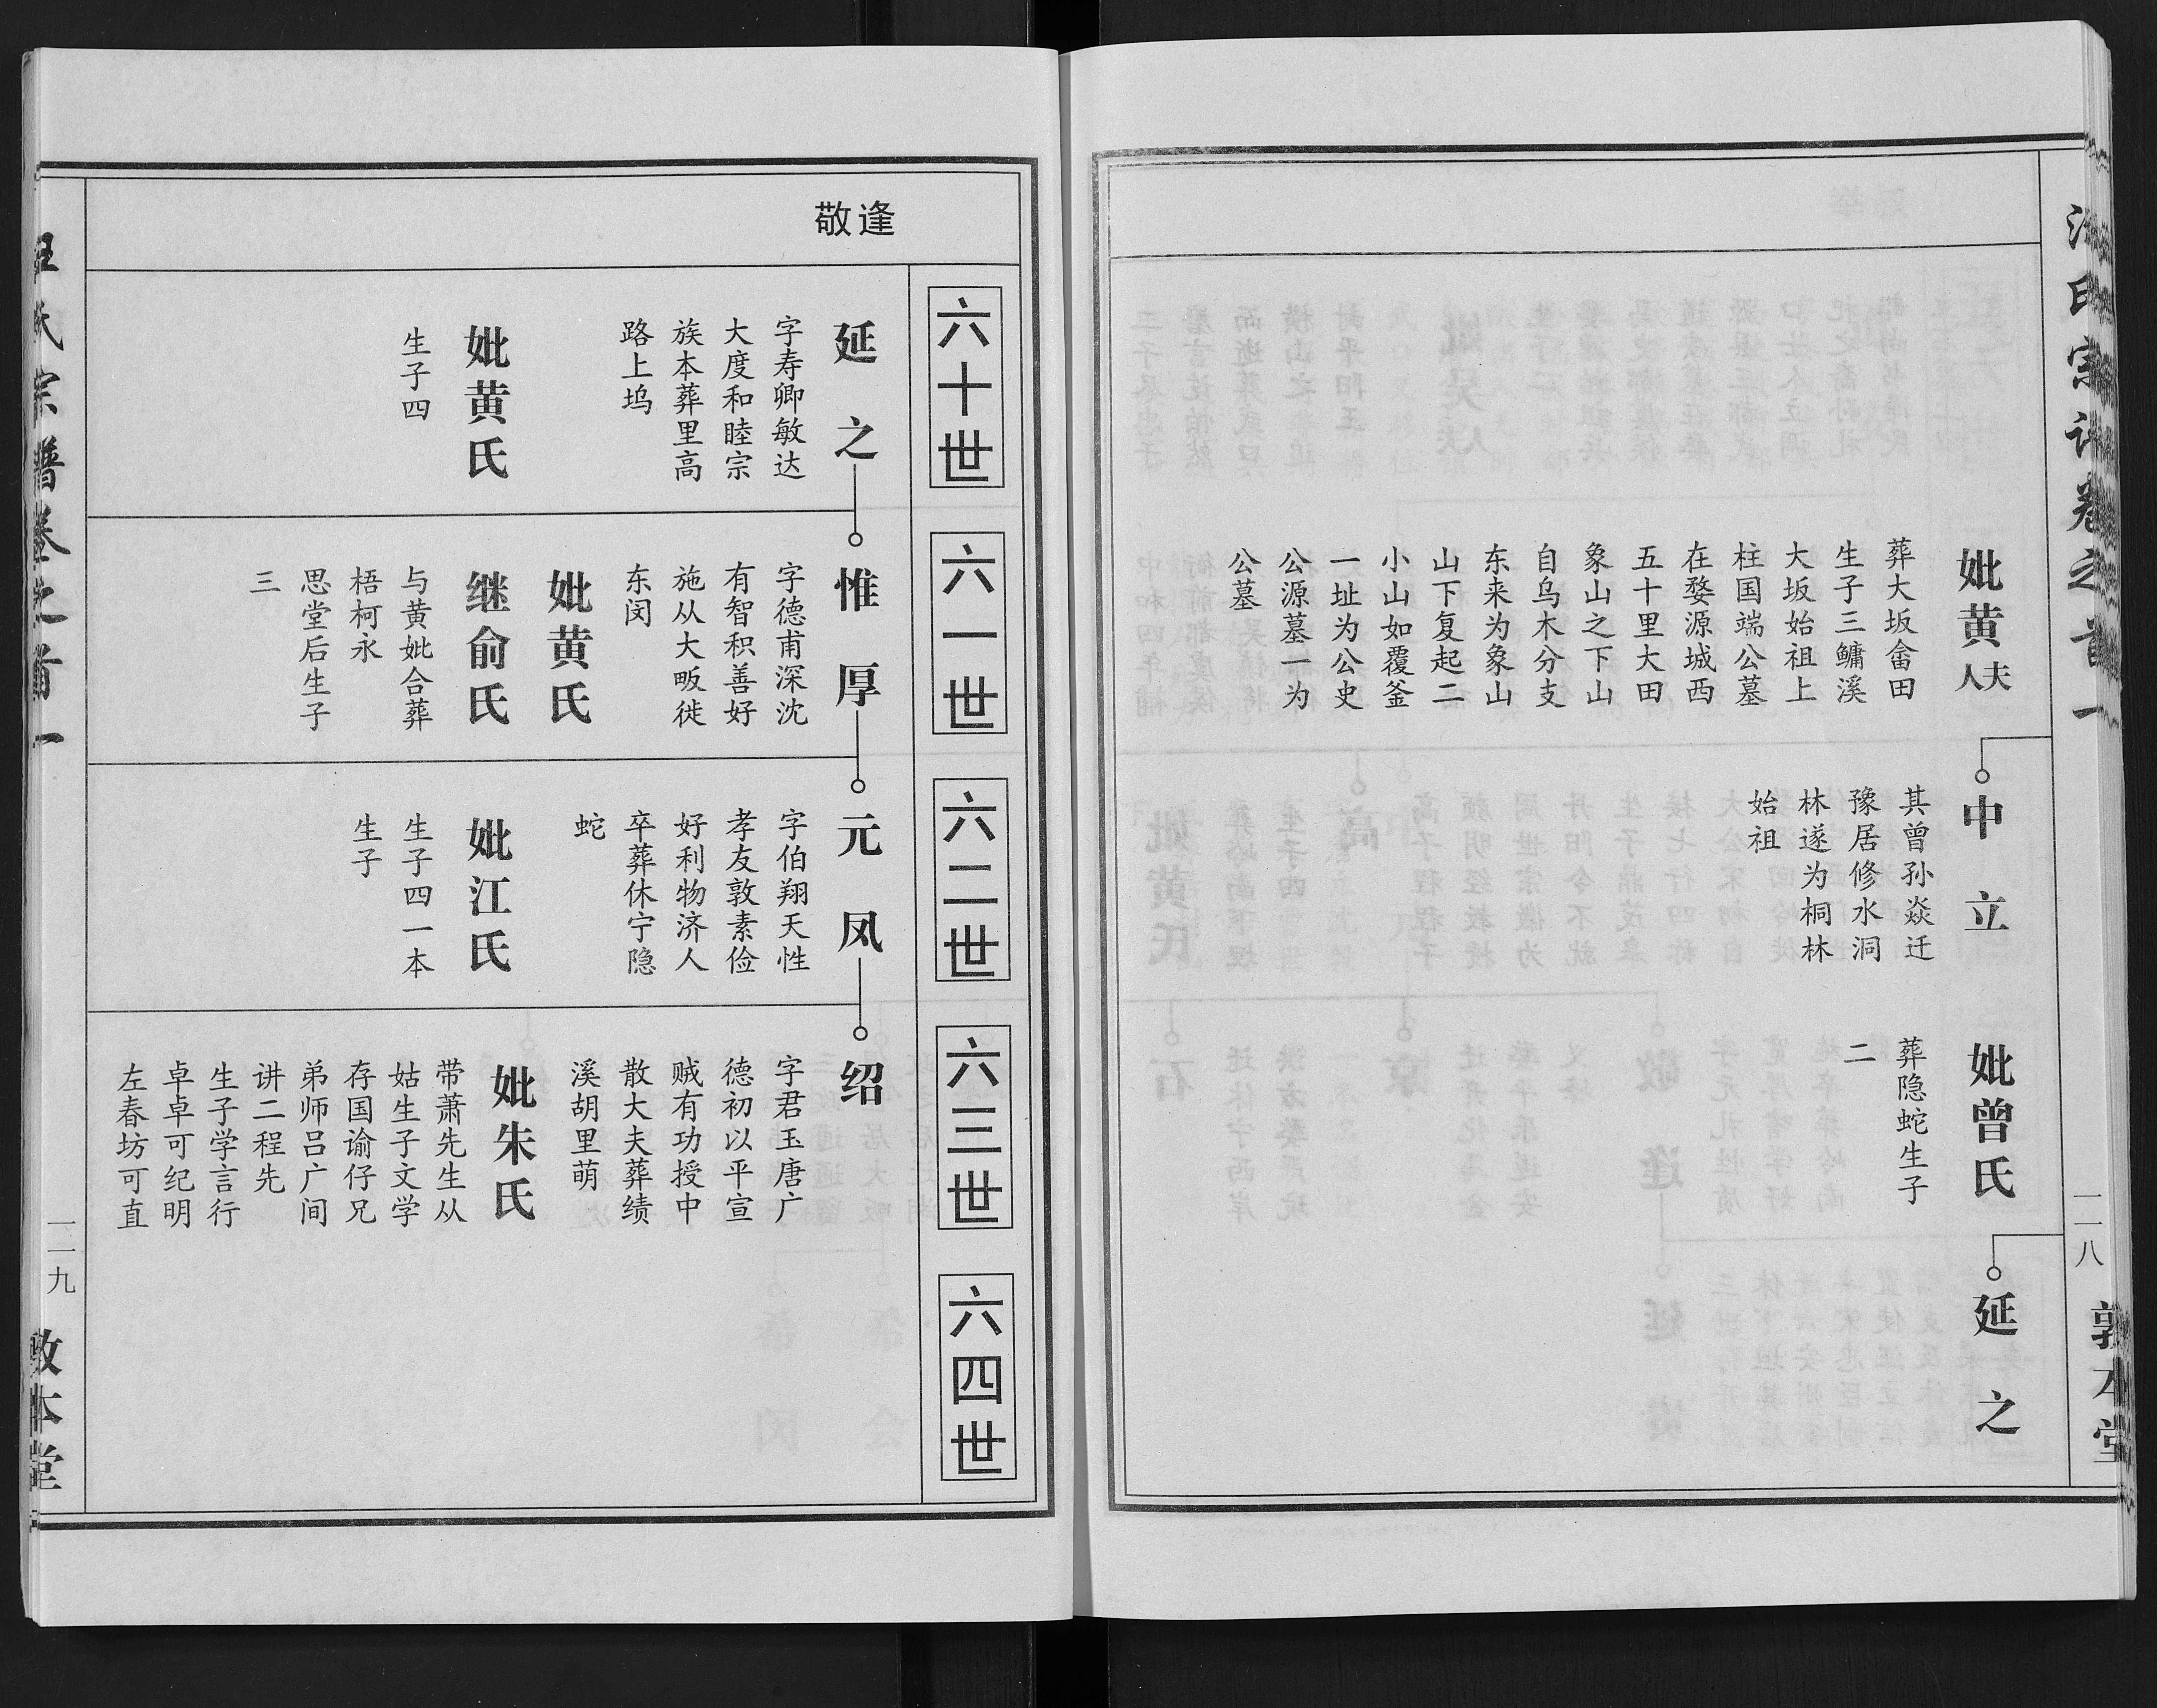 汪氏宗谱卷之首一
一一八
敦本堂
妣黄夫人
葬大坂畲田
生子三鳙溪
大坂始祖上
柱国端公墓
在婺源城西
五十里大田
象山之下山
自乌木分支
东来为象山
山下复起二
小山如覆釜
一址为公史
公源墓一为
公墓
中立
其曾孙焱迁
豫居修水洞
林遂为桐林
始祖
妣曾氏
葬隐蛇生子
二
延之
敬逢
六十世
延之
字寿卿敏达
大度和睦宗
族本葬里高
路上坞
妣黄氏
生子四
六一世
惟厚
字德甫深沈
有智积善好
施从大畈徙
东闵
妣黄氏
继俞氏
与黄妣合葬
梧柯永
思堂后生子
三
六二世
元凤
字伯翔天性
孝友敦素俭
好利物济人
卒葬休宁隐
蛇
妣江氏
生子四一本
生子
六三世
绍
字君玉唐广
德初以平宣
贼有功授中
散大夫葬绩
溪胡里萌
妣朱氏
带萧先生从
姑生子文学
存国谕仔兄
弟师吕广间
讲二程先
生子学言行
卓卓可纪明
左春坊可直
六四世
汪氏宗谱卷之首一
一一九
敦本堂